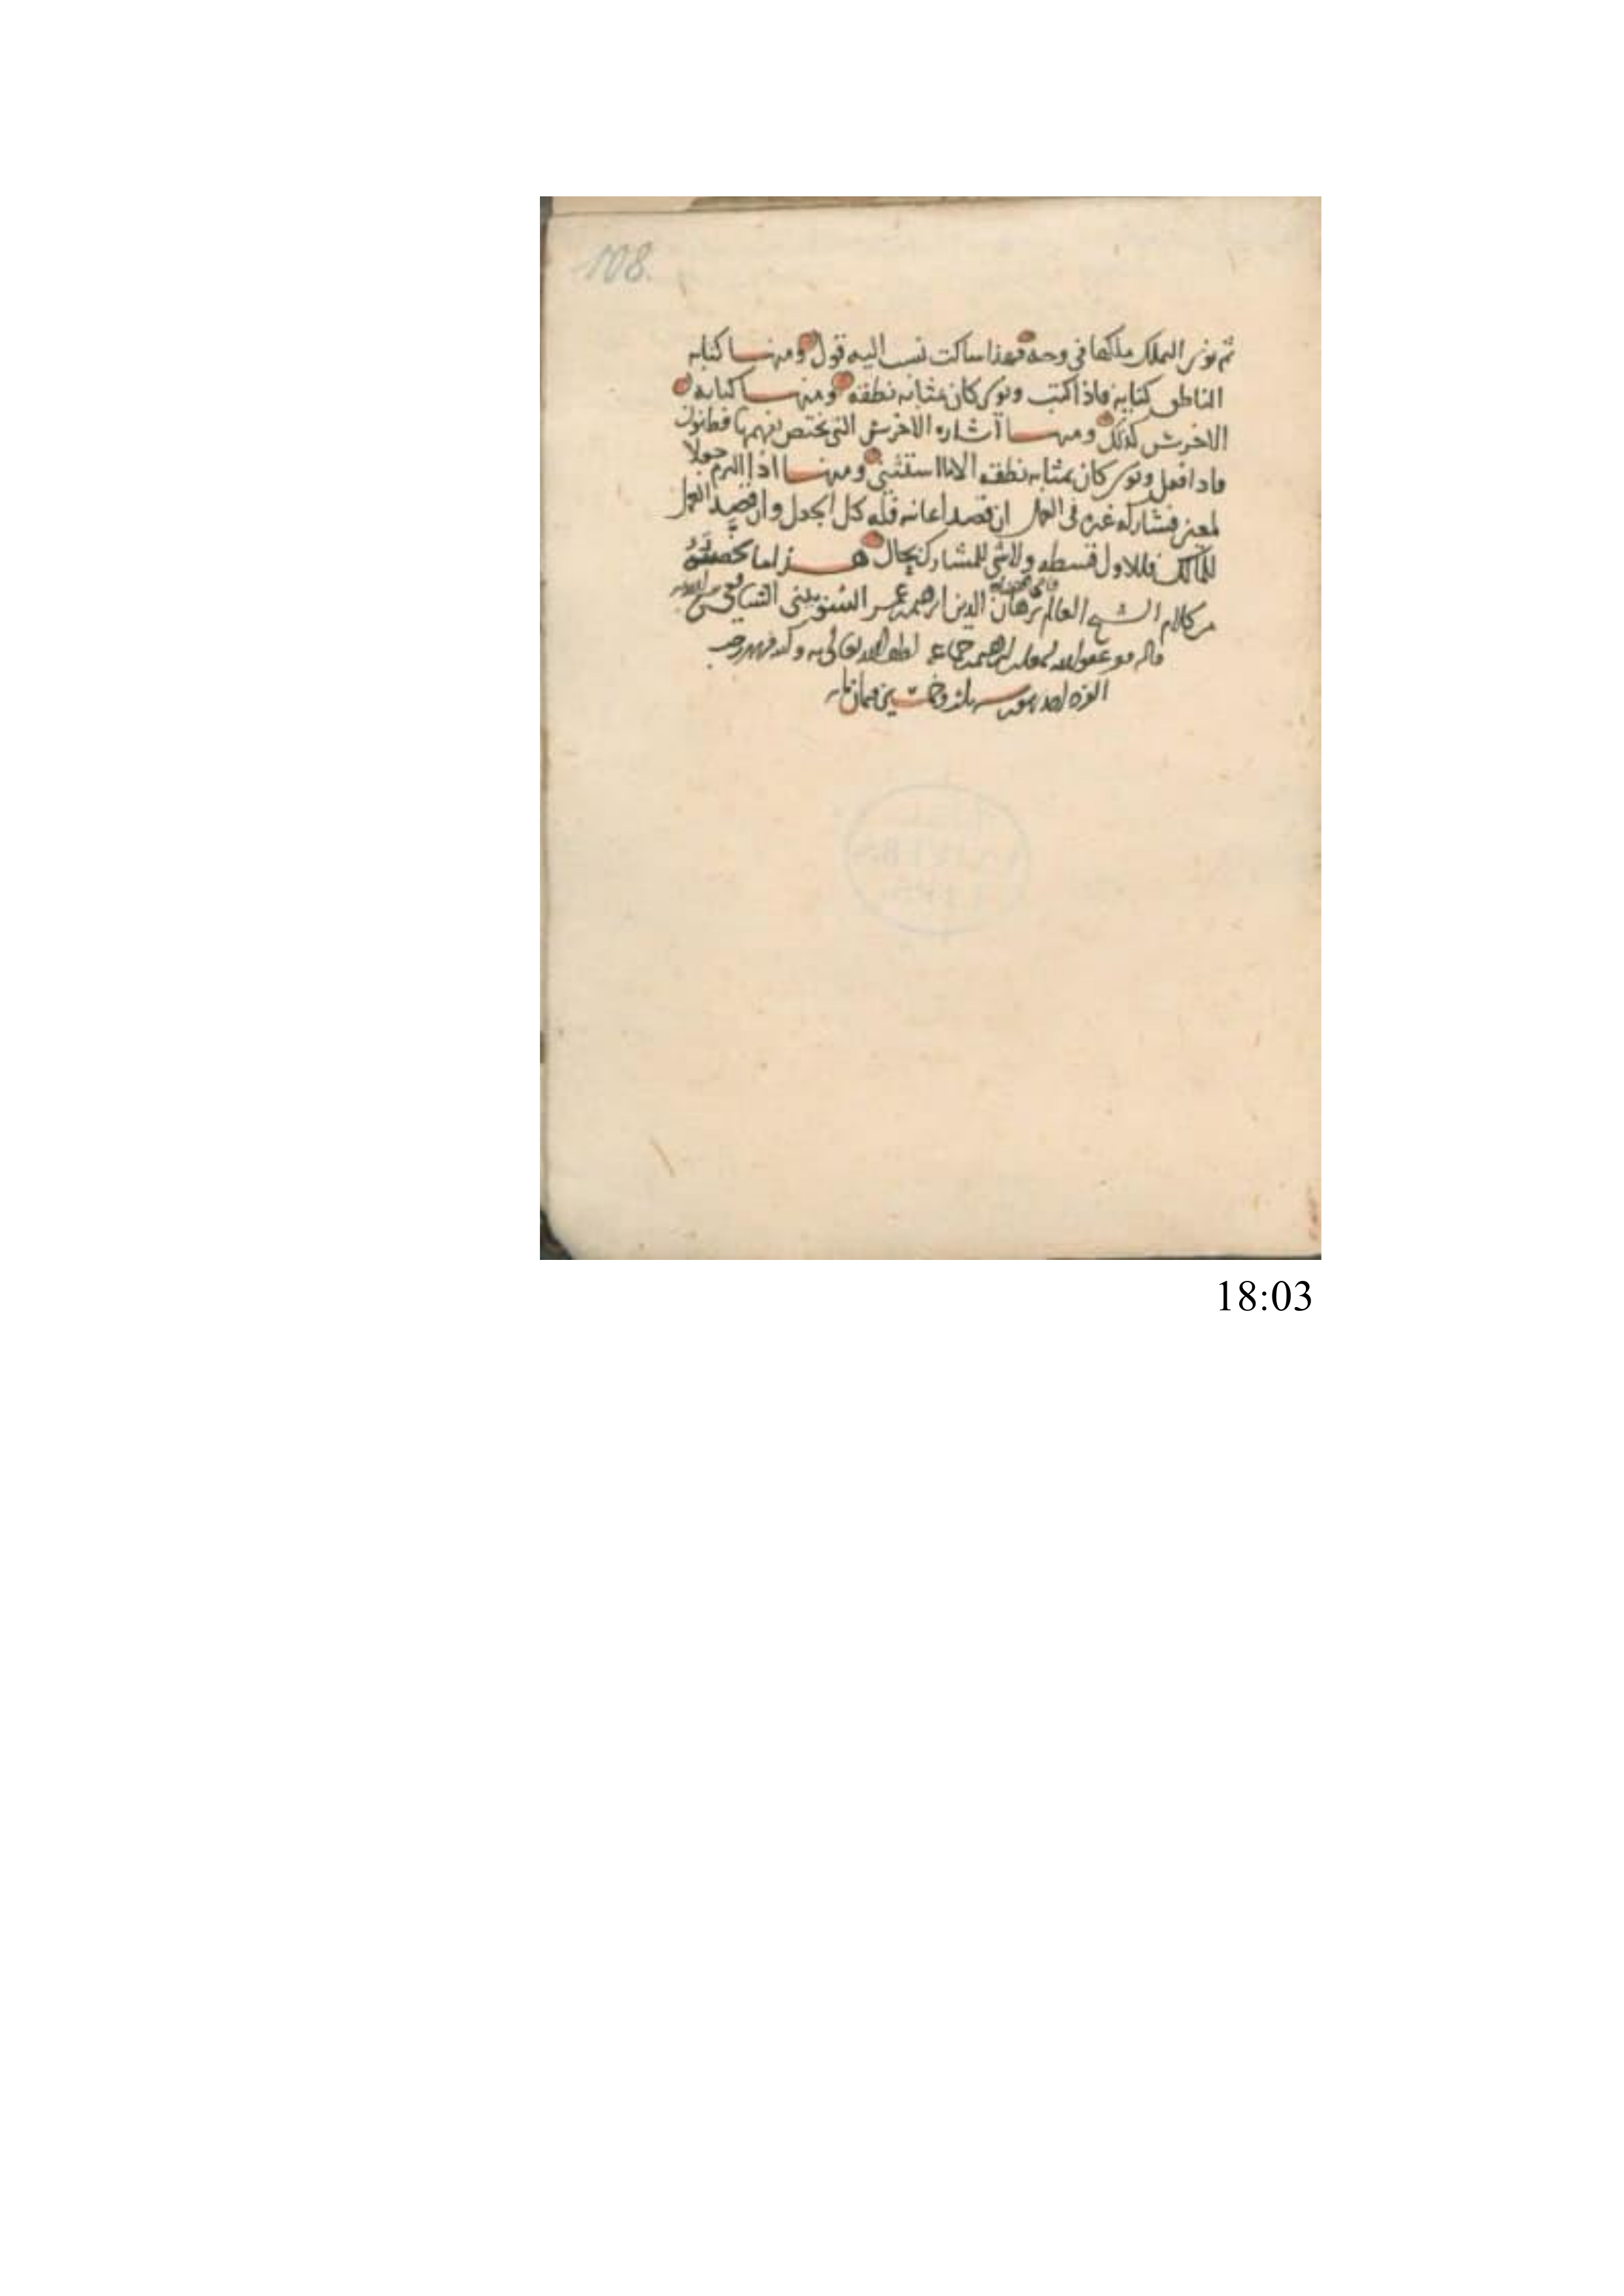 108.
ثم نوى التملك ملكها في وجه فهذا ساكت نسب اليه قول ومنها كتابة
الناطق كناية فاذا كتب ونوى كان بمثابة نطقه ومنها كتابة
الاخرس كذلك ومنها اشارة الاخرس التي يختص بفهمها فطنون
فاذا فعل ونوى كان بمثابة نطقه الا ما استثني ومنها اذا التزم جعلا
لمعين فشاركه غيره في العمل ان قصد اعانته فله كل الجعل وان قصد العمل
للمالك فللاول قسطه ولا شي للمشارك بحال هذا ما لخصته
من كلام الشيخ العالم برهان الدين ابراهيم بن عمر السوبيني الشافعي
ابراهيم بن جماعة لطف الله تعالى به
وخمسين وثمان مايه
18:03